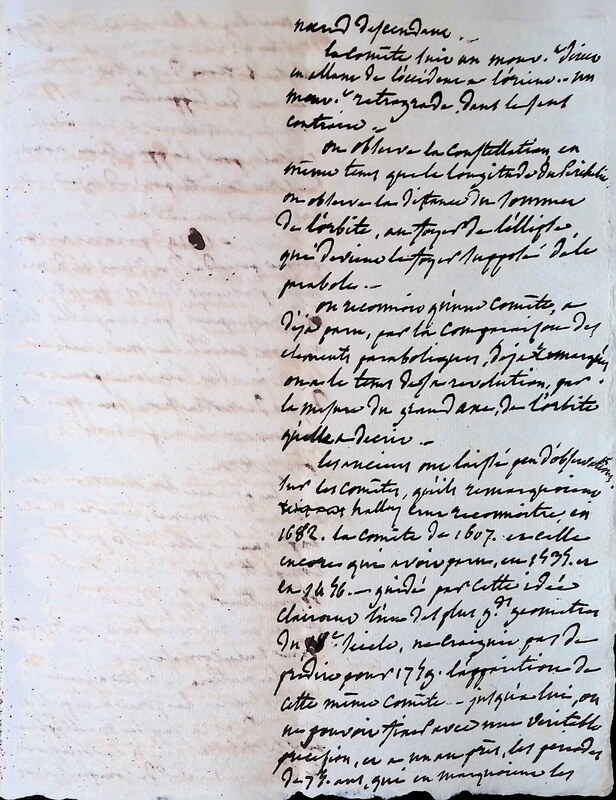 nœud descendant.
la Comète suit un mouv.t direct
en allant de l'occident a l'orient.. un
mouv.t retrograde, dans le sens
contraire —
on observe la Constellation, en
même tems que la longitude du Périhélie
on observe la distance du sommet
de l'orbite, au foyer de l'éllipse,
qui devient le foyer supposé de la
parabole. —
on reconnoit qu'une Comète, a
déja paru, par la Comparaison des
elements paraboliques, déja remarqués
on a le tems de sa revolution, par
la mesure du grand axe, de l'orbite
qu'elle a decrit —
les anciens ont laissé peu d'observations
sur les Comètes, qu'ils remarquoient
halley crut reconnoitre, en
1682. la Comète de 1607. et celle
encores qui avoit paru, en 1535. et
en 1456. — guidé par cette idée
Clairaut l'un des plus g.ds geometres
du 18.e siecle, ne craignit pas de
prédire pour 1759. l'apparition de
cette même Comète — jusqu'a lui, on
ne pouvoit fixer avec une veritable
précision, et a un an près, les periodes
de 75. ans, qui en marquoient les